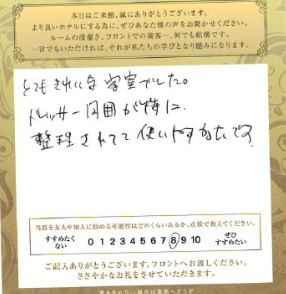 本日はご来館、誠にありがとうございます。
より良いホテルにする為に、ぜひあなた様の声をお聞かせください。
ルームの清潔さ、フロントでの接客…、何でも結構です。
一言でもいただければ、それが私たちの学びとなり励みになります。
とてもきれいな客室でした。
ドレッサー周囲が特に
整理されてて使いやすかったです。
当館を友人や知人に勧める可能性はどのくらいあるか、点数で教えてください。
すすめたくない 0 1 2 3 4 5 6 7 8 9 10 ぜひすすめたい
ご記入ありがとうございます。フロントへお渡しください。
ささやかなお礼をさせていただきます。